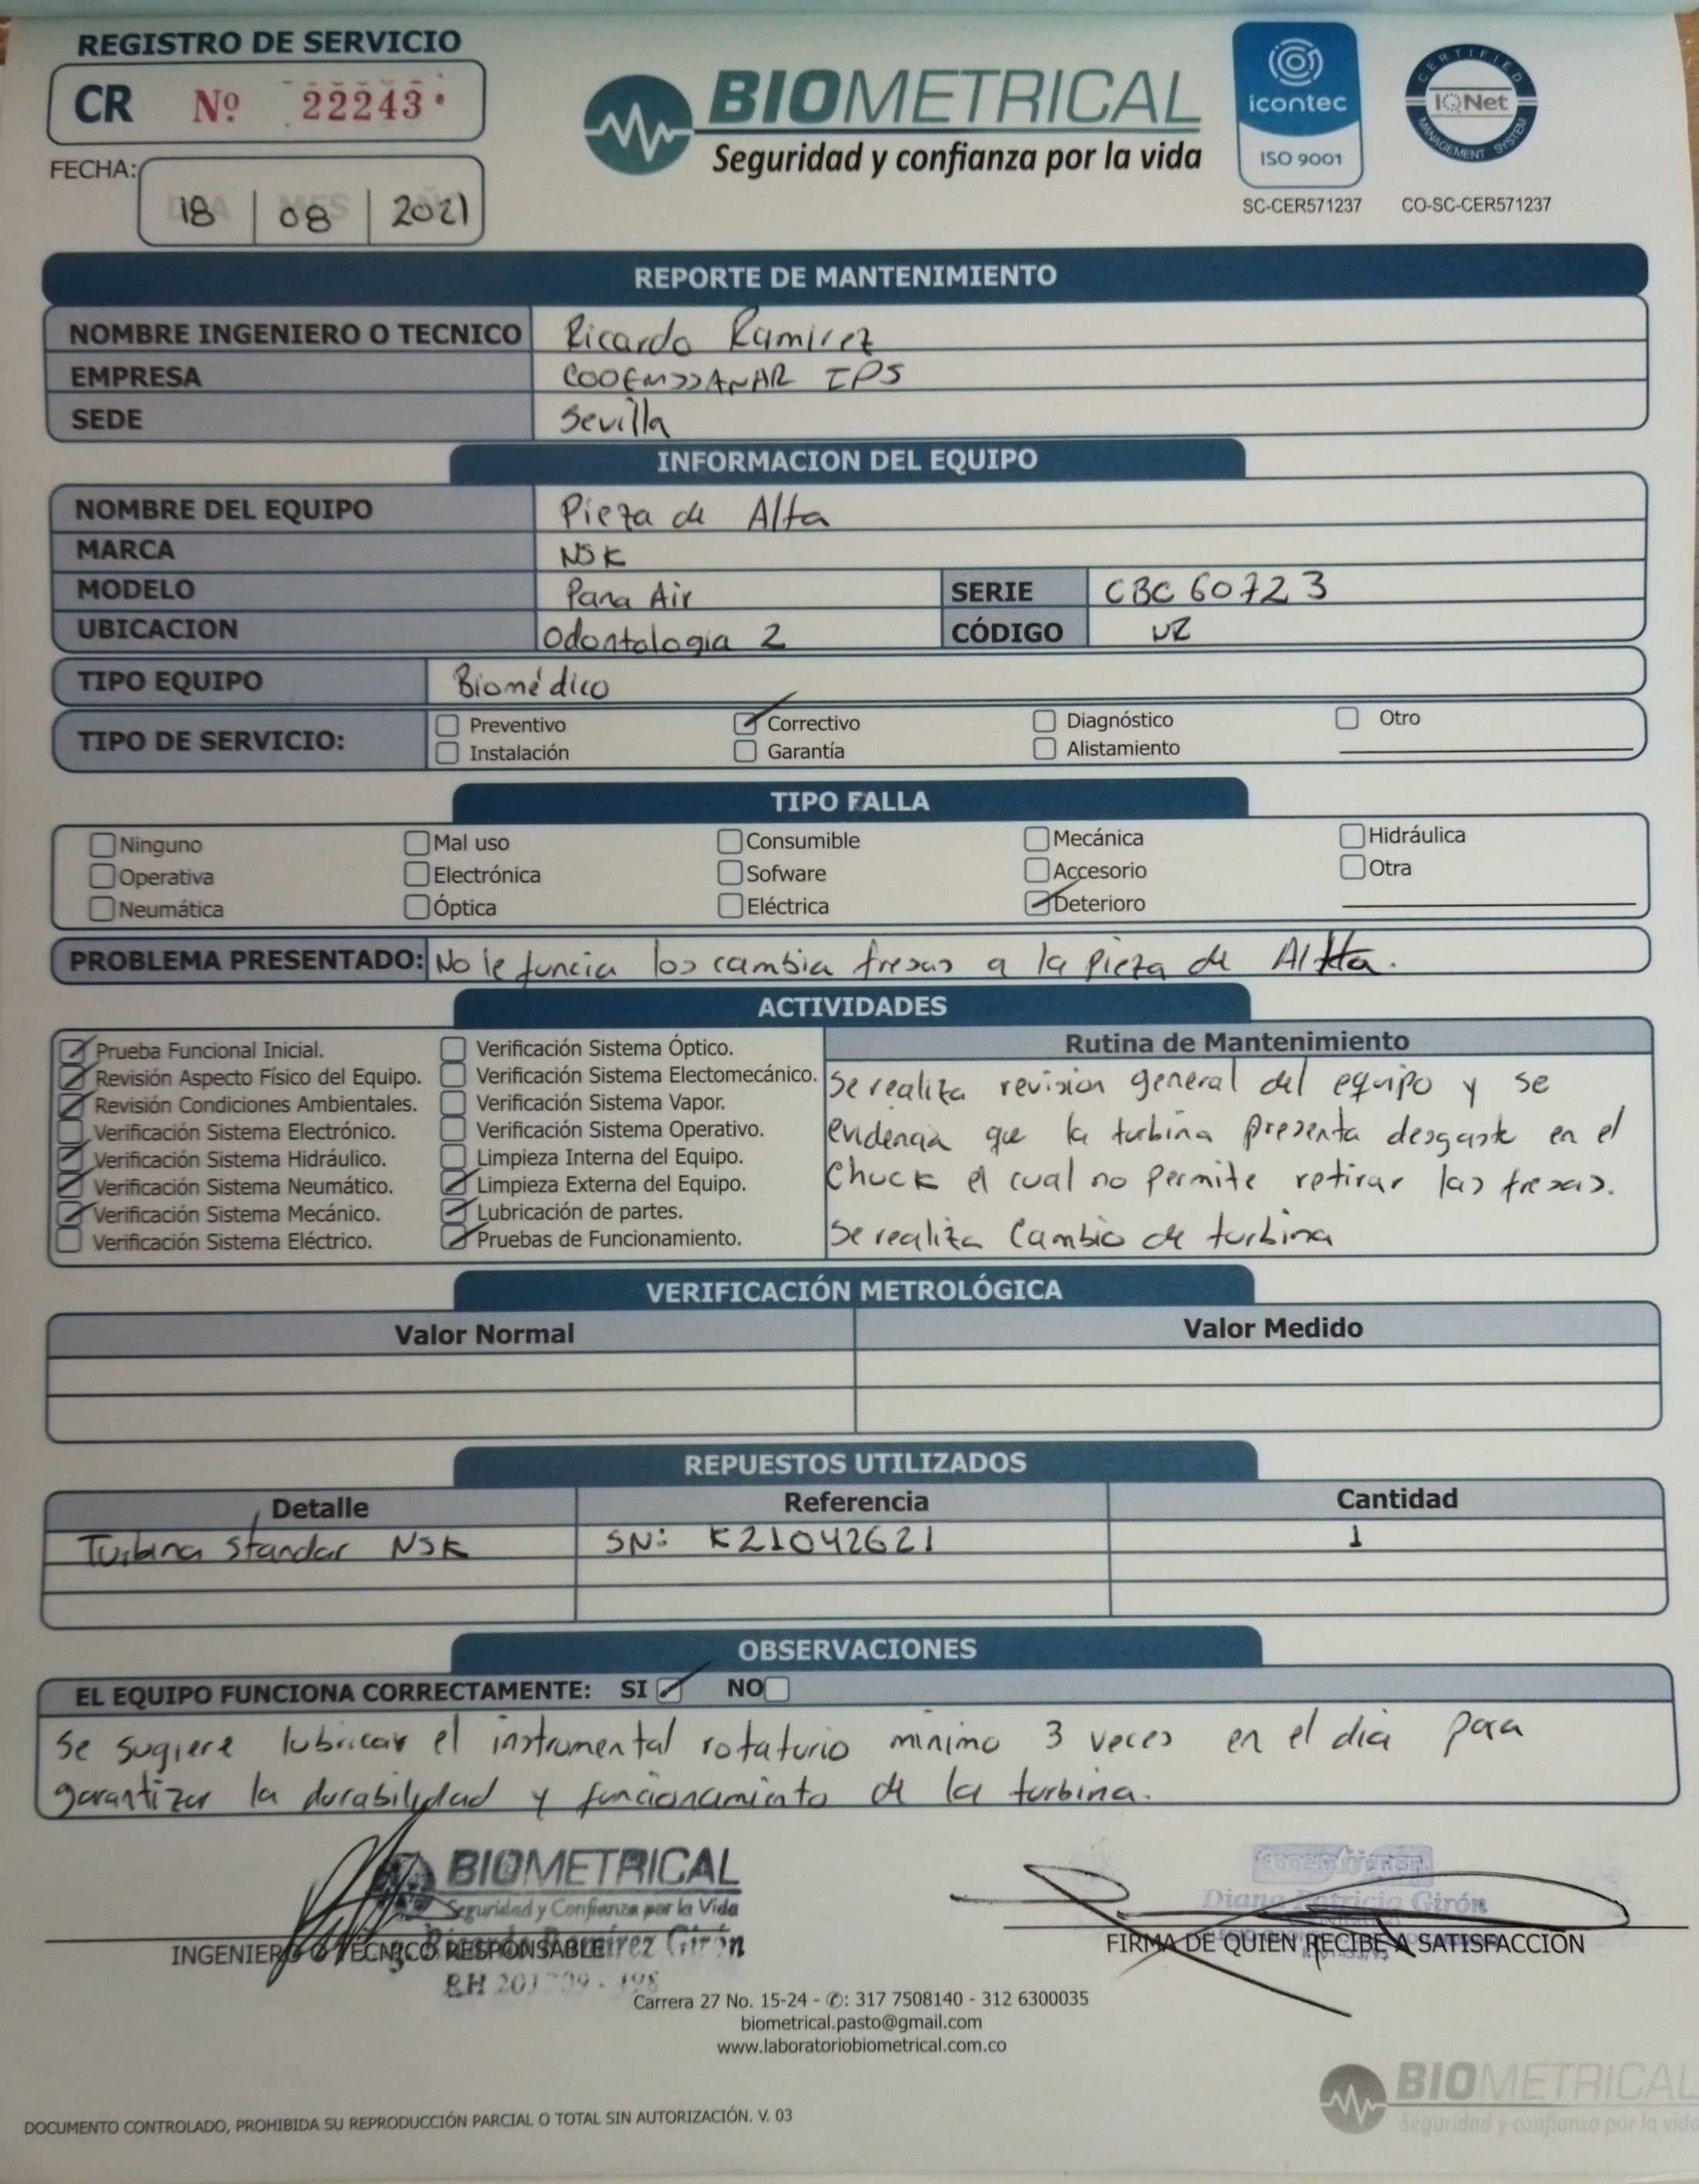 REGISTRO DE SERVICIO
CR Nº 22243
FECHA: 18 08 2021
BIOMETRICAL
Seguridad y confianza por la vida
icontec
ISO 9001
SC-CER571237
CERTIFIED
IQNet
MANAGEMENT SYSTEM
CO-SC-CER571237
REPORTE DE MANTENIMIENTO
NOMBRE INGENIERO O TECNICO Ricardo Ramirez
EMPRESA IPS
SEDE Sevilla
INFORMACION DEL EQUIPO
NOMBRE DEL EQUIPO Pieza de Alta
MARCA NSK
MODELO Pana Air SERIE CBC 60723
UBICACION Odontologia 2 CÓDIGO
TIPO EQUIPO Biomédico
TIPO DE SERVICIO:
Preventivo Correctivo Diagnóstico Otro
Instalación Garantía Alistamiento
TIPO FALLA
Ninguno Mal uso Consumible Mecánica Hidráulica
Operativa Electrónica Sofware Accesorio Otra
Neumática Óptica Eléctrica Deterioro
PROBLEMA PRESENTADO: No le funcia los cambia fresas a la pieza de Alta.
ACTIVIDADES
Prueba Funcional Inicial.
Revisión Aspecto Físico del Equipo.
Revisión Condiciones Ambientales.
Verificación Sistema Electrónico.
Verificación Sistema Hidráulico.
Verificación Sistema Neumático.
Verificación Sistema Mecánico.
Verificación Sistema Eléctrico.
Verificación Sistema Óptico.
Verificación Sistema Electomecánico.
Verificación Sistema Vapor.
Verificación Sistema Operativo.
Limpieza Interna del Equipo.
Limpieza Externa del Equipo.
Lubricación de partes.
Pruebas de Funcionamiento.
Rutina de Mantenimiento
Se realiza revision general del equipo y se
evidencia que la turbina presenta desgaste en el
Chuck el cual no permite retirar las fresas.
Se realiza Cambio de turbina
VERIFICACIÓN METROLÓGICA
Valor Normal Valor Medido
REPUESTOS UTILIZADOS
Detalle Referencia Cantidad
Turbina Standar NSK SN: K21042621 1
OBSERVACIONES
EL EQUIPO FUNCIONA CORRECTAMENTE: SI NO
Se sugiere lubricar el instrumental rotaturio minimo 3 veces en el dia para
garantizar la durabilidad y funcionamiento de la turbina.
BIOMETRICAL
Seguridad y Confianza por la Vida
Ricardo Ramírez Girón
INGENIERO O TECNICO RESPONSABLE
Diana Patricia Girón
FIRMA DE QUIEN RECIBE A SATISFACCIÓN
Carrera 27 No. 15-24 - ✆: 317 7508140 - 312 6300035
biometrical.pasto@gmail.com
www.laboratoriobiometrical.com.co
DOCUMENTO CONTROLADO, PROHIBIDA SU REPRODUCCIÓN PARCIAL O TOTAL SIN AUTORIZACIÓN. V. 03
BIOMETRICAL
Seguridad y confianza por la vida